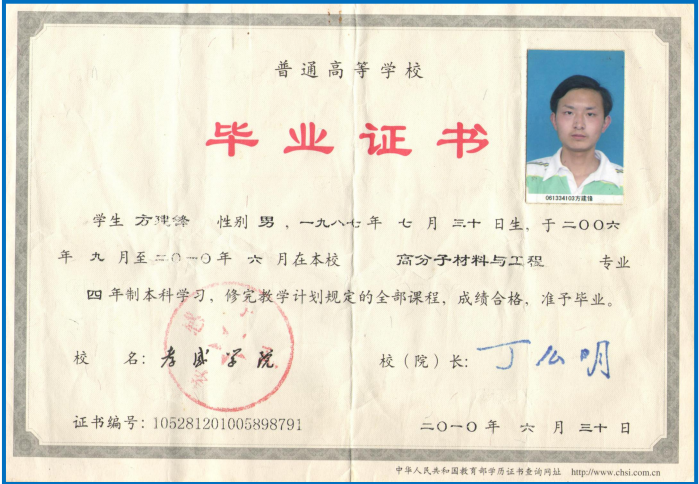 普通高等学校
毕业证书
061334103方建锋
学生 方建锋 性别 男 ，一九八七年 七 月 三十 日生，于二〇〇六
年 九 月至二〇一〇年 六 月在本校 高分子材料与工程 专业
四 年制本科学习，修完教学计划规定的全部课程，成绩合格，准予毕业。
校 名：孝感学院 校（院）长：丁么明
证书编号：105281201005898791
二〇一〇年 六 月 三十 日
中华人民共和国教育部学历证书查询网址 http://www.chsi.com.cn